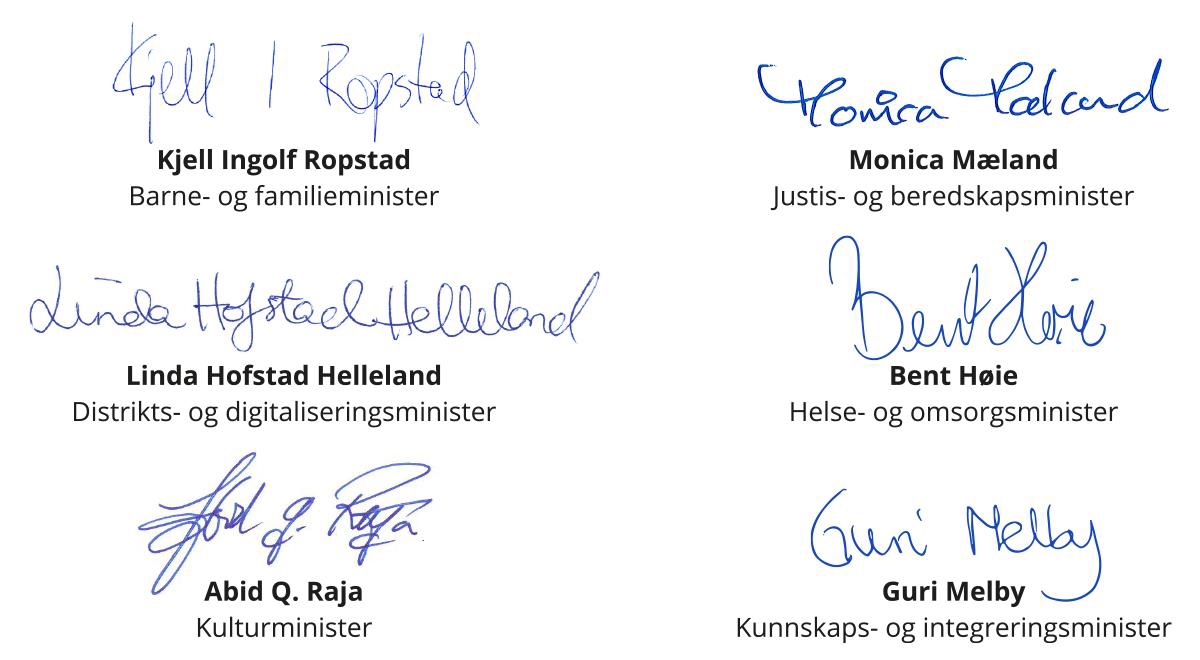 Kjell I Ropstad
Kjell Ingolf Ropstad
Barne- og familieminister
Monica Mæland
Monica Mæland
Justis- og beredskapsminister
Linda Hofstad Helleland
Linda Hofstad Helleland
Distrikts- og digitaliseringsminister
Bent Høie
Bent Høie
Helse- og omsorgsminister
Abid Q. Raja
Abid Q. Raja
Kulturminister
Guri Melby
Guri Melby
Kunnskaps- og integreringsminister